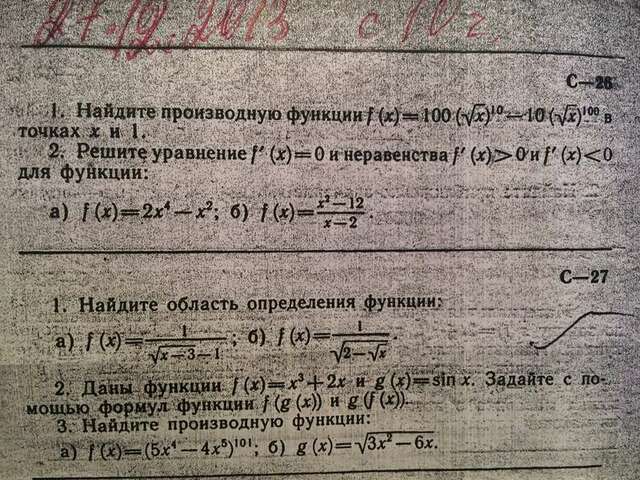 27.12.2013 с 10 г.
С—26
1. Найдите производную функции f (x)=100 (√x)¹⁰—10 (√x)¹⁰⁰ в
точках x и 1.
2. Решите уравнение f′ (x)=0 и неравенства f′ (x)>0 и f′ (x)<0
для функции:
а) f (x)=2x⁴—x²; б) f (x)=(x²—12)/(x—2).
С—27
1. Найдите область определения функции:
а) f (x)=1/(√(x—3)—1); б) f (x)=1/√(2—√x).
2. Даны функции f (x)=x³+2x и g (x)=sin x. Задайте с по-
мощью формул функции f (g (x)) и g (f (x)).
3. Найдите производную функции:
а) f (x)=(5x⁴—4x⁵)¹⁰¹; б) g (x)=√(3x²—6x).